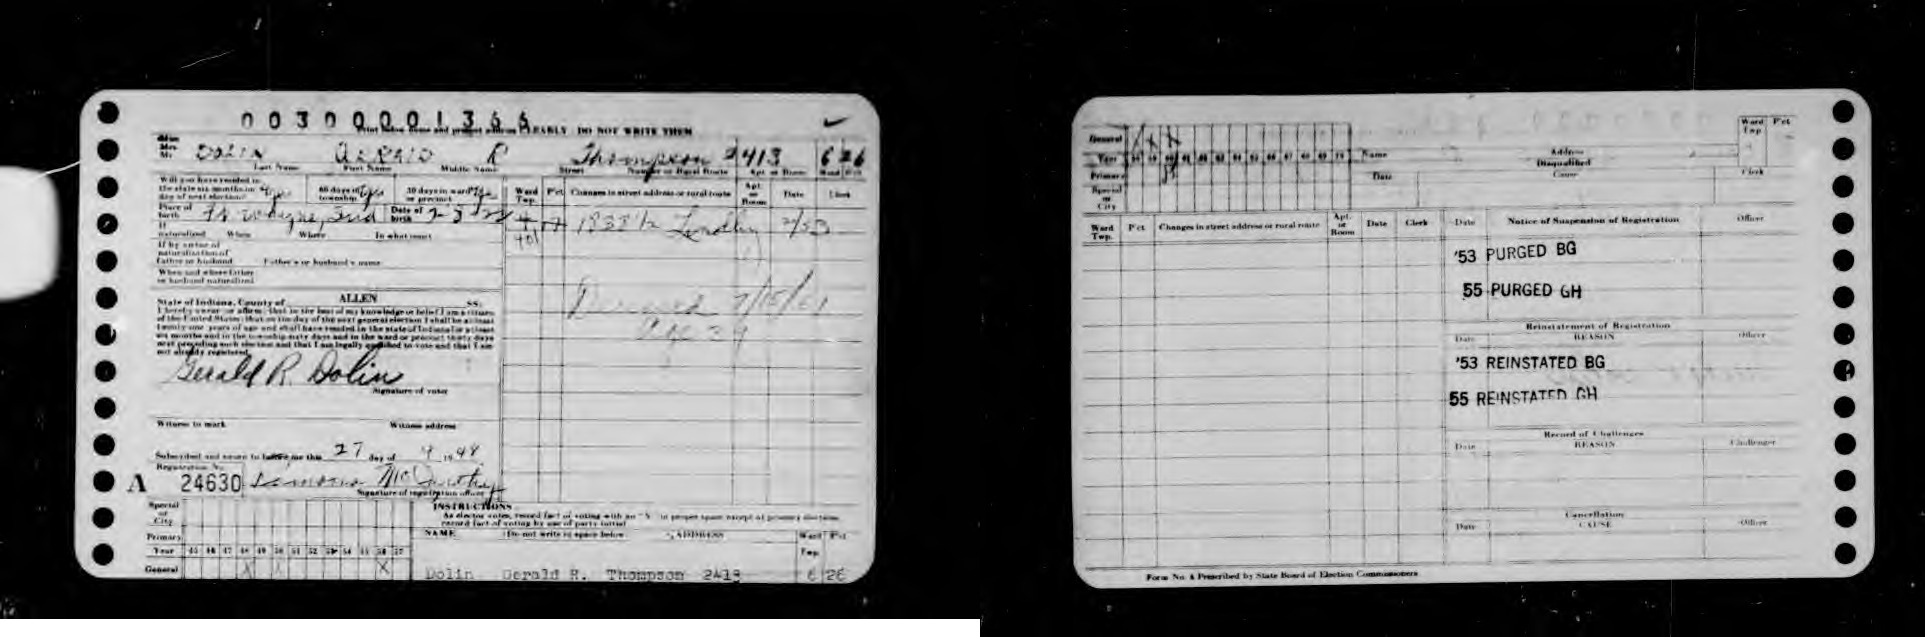 0030000136
Print below name and present address CLEARLY DO NOT WRITE THEM
Miss
Mrs.
Mr. DOLIN GERALD R Thompson 2413 6 26
Last Name First Name Middle Name Street Number or Rural Route Apt. or Room Ward Pct
Will you have resided in
the state six months on yes 60 days in yes 30 days in ward yes
day of next election? township or precinct
Ward Twp. P'ct Changes in street address or rural route Apt. or Room Date Clerk
Place of birth Ft Wayne, Ind Date of birth
If naturalized When Where In what court
1838 1/2 Lindley 2/53
If by virtue of
naturalization of
father or husband Father's or husband's name
When and where father
or husband naturalized
Deceased 7/15/61
age 39
State of Indiana, County of ALLEN SS:
I hereby swear or affirm that to the best of my knowledge or belief I am a citizen
of the United States; that on the day of the next general election I shall be at least
twenty-one years of age and shall have resided in the state of Indiana for at least
six months and in the township sixty days and in the ward or precinct thirty days
next preceding such election and that I am legally qualified to vote and that I am
not already registered.
Gerald R. Dolin
Signature of voter
Witness to mark Witness address
Subscribed and sworn to before me this 27 day of 4 1948
Registration No.
A 24630
Signature of registration officer
INSTRUCTIONS
As elector votes, record fact of voting with an "X" in proper space except at primary elections
record fact of voting by use of party initial
Special or City
Primary
Year 45 46 47 48 49 50 51 52 53 54 55 56 57
General X X X
NAME (Do not write in space below) ADDRESS Ward Twp. P'ct
Dolin Gerald R. Thompson 2413 6 26
General
Year
Primary
Special or City
Name Address Ward Twp P'ct
Disqualified
Date Cause Clerk
Ward Twp. P'ct Changes in street address or rural route Apt. or Room Date Clerk
Date Notice of Suspension of Registration Officer
'53 PURGED BG
55 PURGED GH
Reinstatement of Registration
Date REASON Officer
'53 REINSTATED BG
55 REINSTATED GH
Record of Challenges
Date REASON Challenger
Cancellation
Date CAUSE Officer
Form No. 4 Prescribed by State Board of Election Commissioners